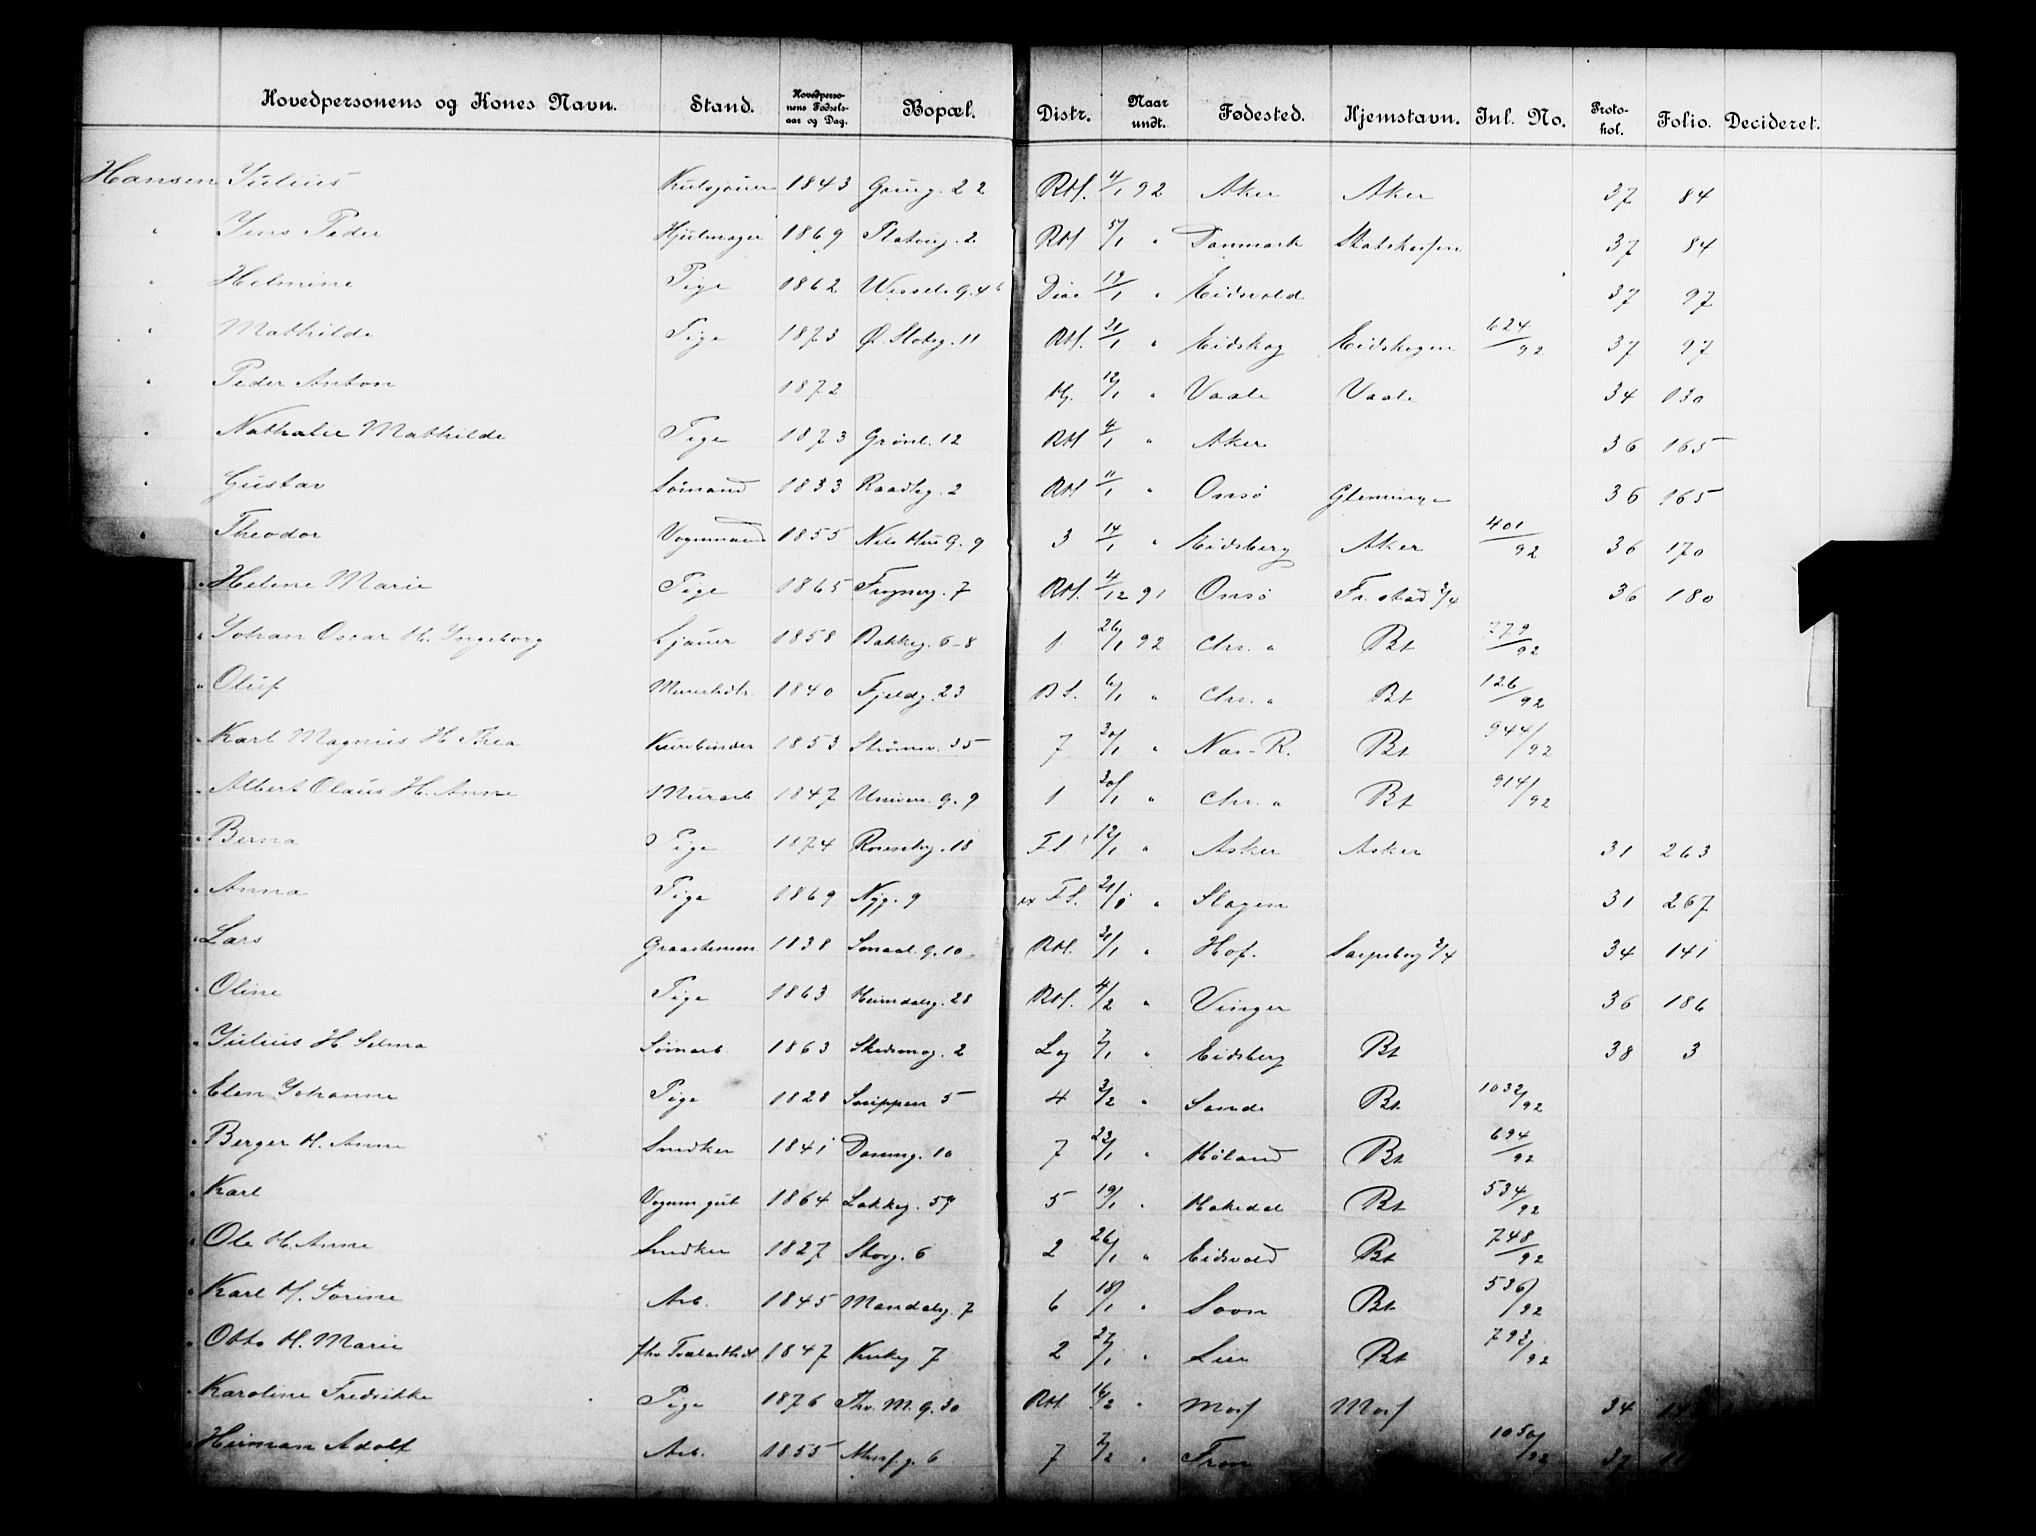 Hovedpersonens og Kones Navn. Stand. Hovedpersonens Fødselsaar og Dag. Bopæl. Distr. Naar undt. Fødested. Hjemstavn. Inl. No. Protokol. Folio. Decideret.
Hansen Julius 1843 Grung. 22 RH. 4/1 92 Aker Aker 37 84
" Jens Peder Hjulmager 1869 Platoug. 2 RH 5/1 " Danmark 37 84
" Helmine Pige 1862 Wessels g. 4 b 12/1 " Eidsvold 37 97
" Mathilde Pige 1873 Ø. Slotsg. 11 RH. 21/1 " Eidskog Eidskogen 624/92 37 97
" Peder Anton 1872 12/1 " Vaale Vaale 34 130
" Nathalie Mathilde Pige 1873 Grønl. 12 RH 4/1 " Aker 36 165
" Gustav Sømand 1833 Raadhg. 2 RH 11/1 " Onsø Glemminge 36 165
" Theodor Vognmand 1855 Nels Hus g. 9 3 14/1 " Eidsberg Aker 401/92 36 170
" Helene Marie Pige 1865 Frognerg. 7 RH. 4/12 91 Onsø Fr.stad 3/4 36 180
" Johan Oscar H. Ingeborg Sjauer 1858 Bakkeg. 6-8 1 26/1 92 Chr. a Bt 779/92
" Oluf 1840 Fjeldg. 23 6/1 " Chr. a Bt 126/92
" Karl Magnus H. Thea Kurvbinder 1853 Strømsv. 35 7 30/1 " Nas-R. Bt 944/92
" Albert Olaus H. Anne Murarb. 1847 Univers. g. 9 1 30/1 " Chr. a Bt 914/92
" Berna Pige 1874 Rosenbg. 18 12/1 " Asker Asker 31 263
" Anna Pige 1869 Nyg. 9 21/1 " Slagen 31 267
" Lars 1838 Smaal. g. 10 RH. 21/1 " Hof. Sarpsborg 3/4 34 141
" Oline Pige 1863 Heimdalsg. 28 RH. 4/2 " Vinger 36 186
" Julius H Selma 1863 Skedsmog. 2 Lg 7/1 " Eidsberg Bt 38 3
" Elen Johanne Pige 1828 5 4 3/2 " Sande Bt 1032/92
" Berger H. Anne Snedker 1841 10 7 23/1 " Høland Bt 694/92
" Karl Vognm gut 1864 Lakkeg. 59 5 19/1 " Hakedal Bt 534/92
" Ole H. Anne Snedker 1827 Storg. 6 2 26/1 " Eidsvold Bt 748/92
" Karl H. Sørine Arb. 1845 Mandalsg. 7 6 18/1 " Bt 536/92
" Otto H. Marie 1847 Kirkeg 7 2 27/1 " Lier Bt 793/92
" Karoline Fredrikke Pige 1876 Thv. M. g. 30 RH. 16/2 " Moss Moss 34
" Herman Adolf Arb. 1855 6 7 2/2 " Fron 1050/92 37